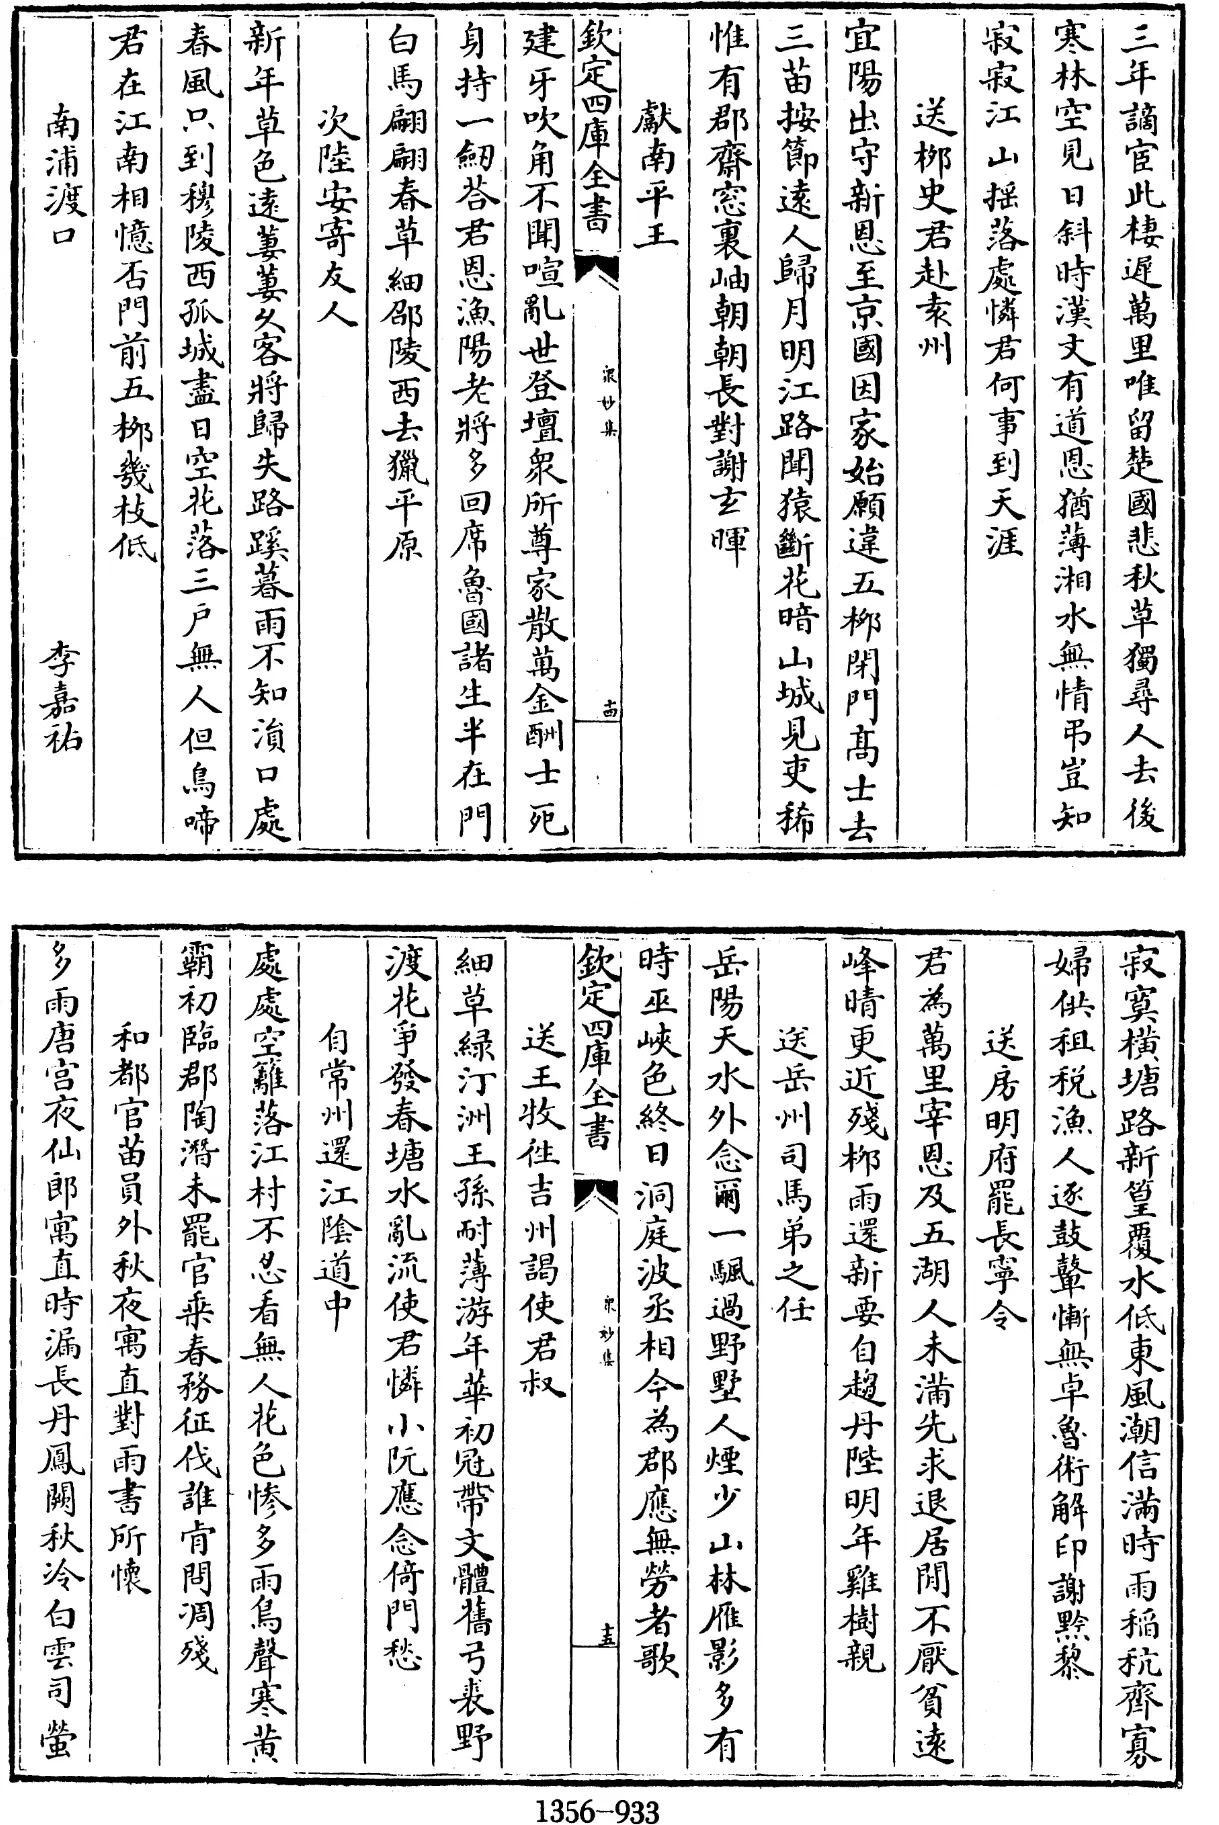 三年謫宦此棲遲萬里唯留楚國悲秋草獨尋人去後
寒林空見日斜時漢文有道恩猶薄湘水無情弔豈知
寂寂江山揺落處憐君何事到天涯
送栁史君赴袁州
宜陽出守新恩至京國因家始願違五栁閉門髙士去
三苗按節遠人歸月明江路聞猿斷花暗山城見吏稀
惟有郡齋窓裏岫朝朝長對謝玄暉
獻南平王
欽定四庫全書
衆妙集
十四
建牙吹角不聞喧亂世登壇衆所尊家散萬金酬士死
身持一劒荅君恩漁陽老將多回席魯國諸生半在門
白馬翩翩春草細邵陵西去獵平原
次陸安寄友人
新年草色遠萋萋久客將歸失路蹊暮雨不知溳口處
春風只到穆陵西孤城盡日空花落三户無人但鳥啼
君在江南相憶否門前五栁幾枝低
南浦渡口
李嘉祐
寂寞横塘路新篁覆水低東風潮信滿時雨稻秔齊寡
婦供租税漁人逐鼓鼙慚無卓魯術解印謝黔黎
送房明府罷長寧令
君為萬里宰恩及五湖人未滿先求退居閒不厭貧遠
峰晴更近殘栁雨還新要自趨丹陛明年雞樹親
送岳州司馬弟之任
岳陽天水外念爾一颿過野墅人煙少山林雁影多有
時巫峽色終日洞庭波丞相今為郡應無勞者歌
欽定四庫全書
衆妙集
十五
送王牧徃吉州謁使君叔
細草緑汀洲王孫耐薄游年華初冠帶文體舊弓裘野
渡花爭發春塘水亂流使君憐小阮應念倚門愁
自常州還江陰道中
處處空籬落江村不忍看無人花色惨多雨鳥聲寒黄
霸初臨郡陶潛未罷官乗春務征伐誰肯問凋殘
和都官苗員外秋夜寓直對雨書所懷
多雨唐宫夜仙郎寓直時漏長丹鳳闕秋冷白雲司螢
1356-933